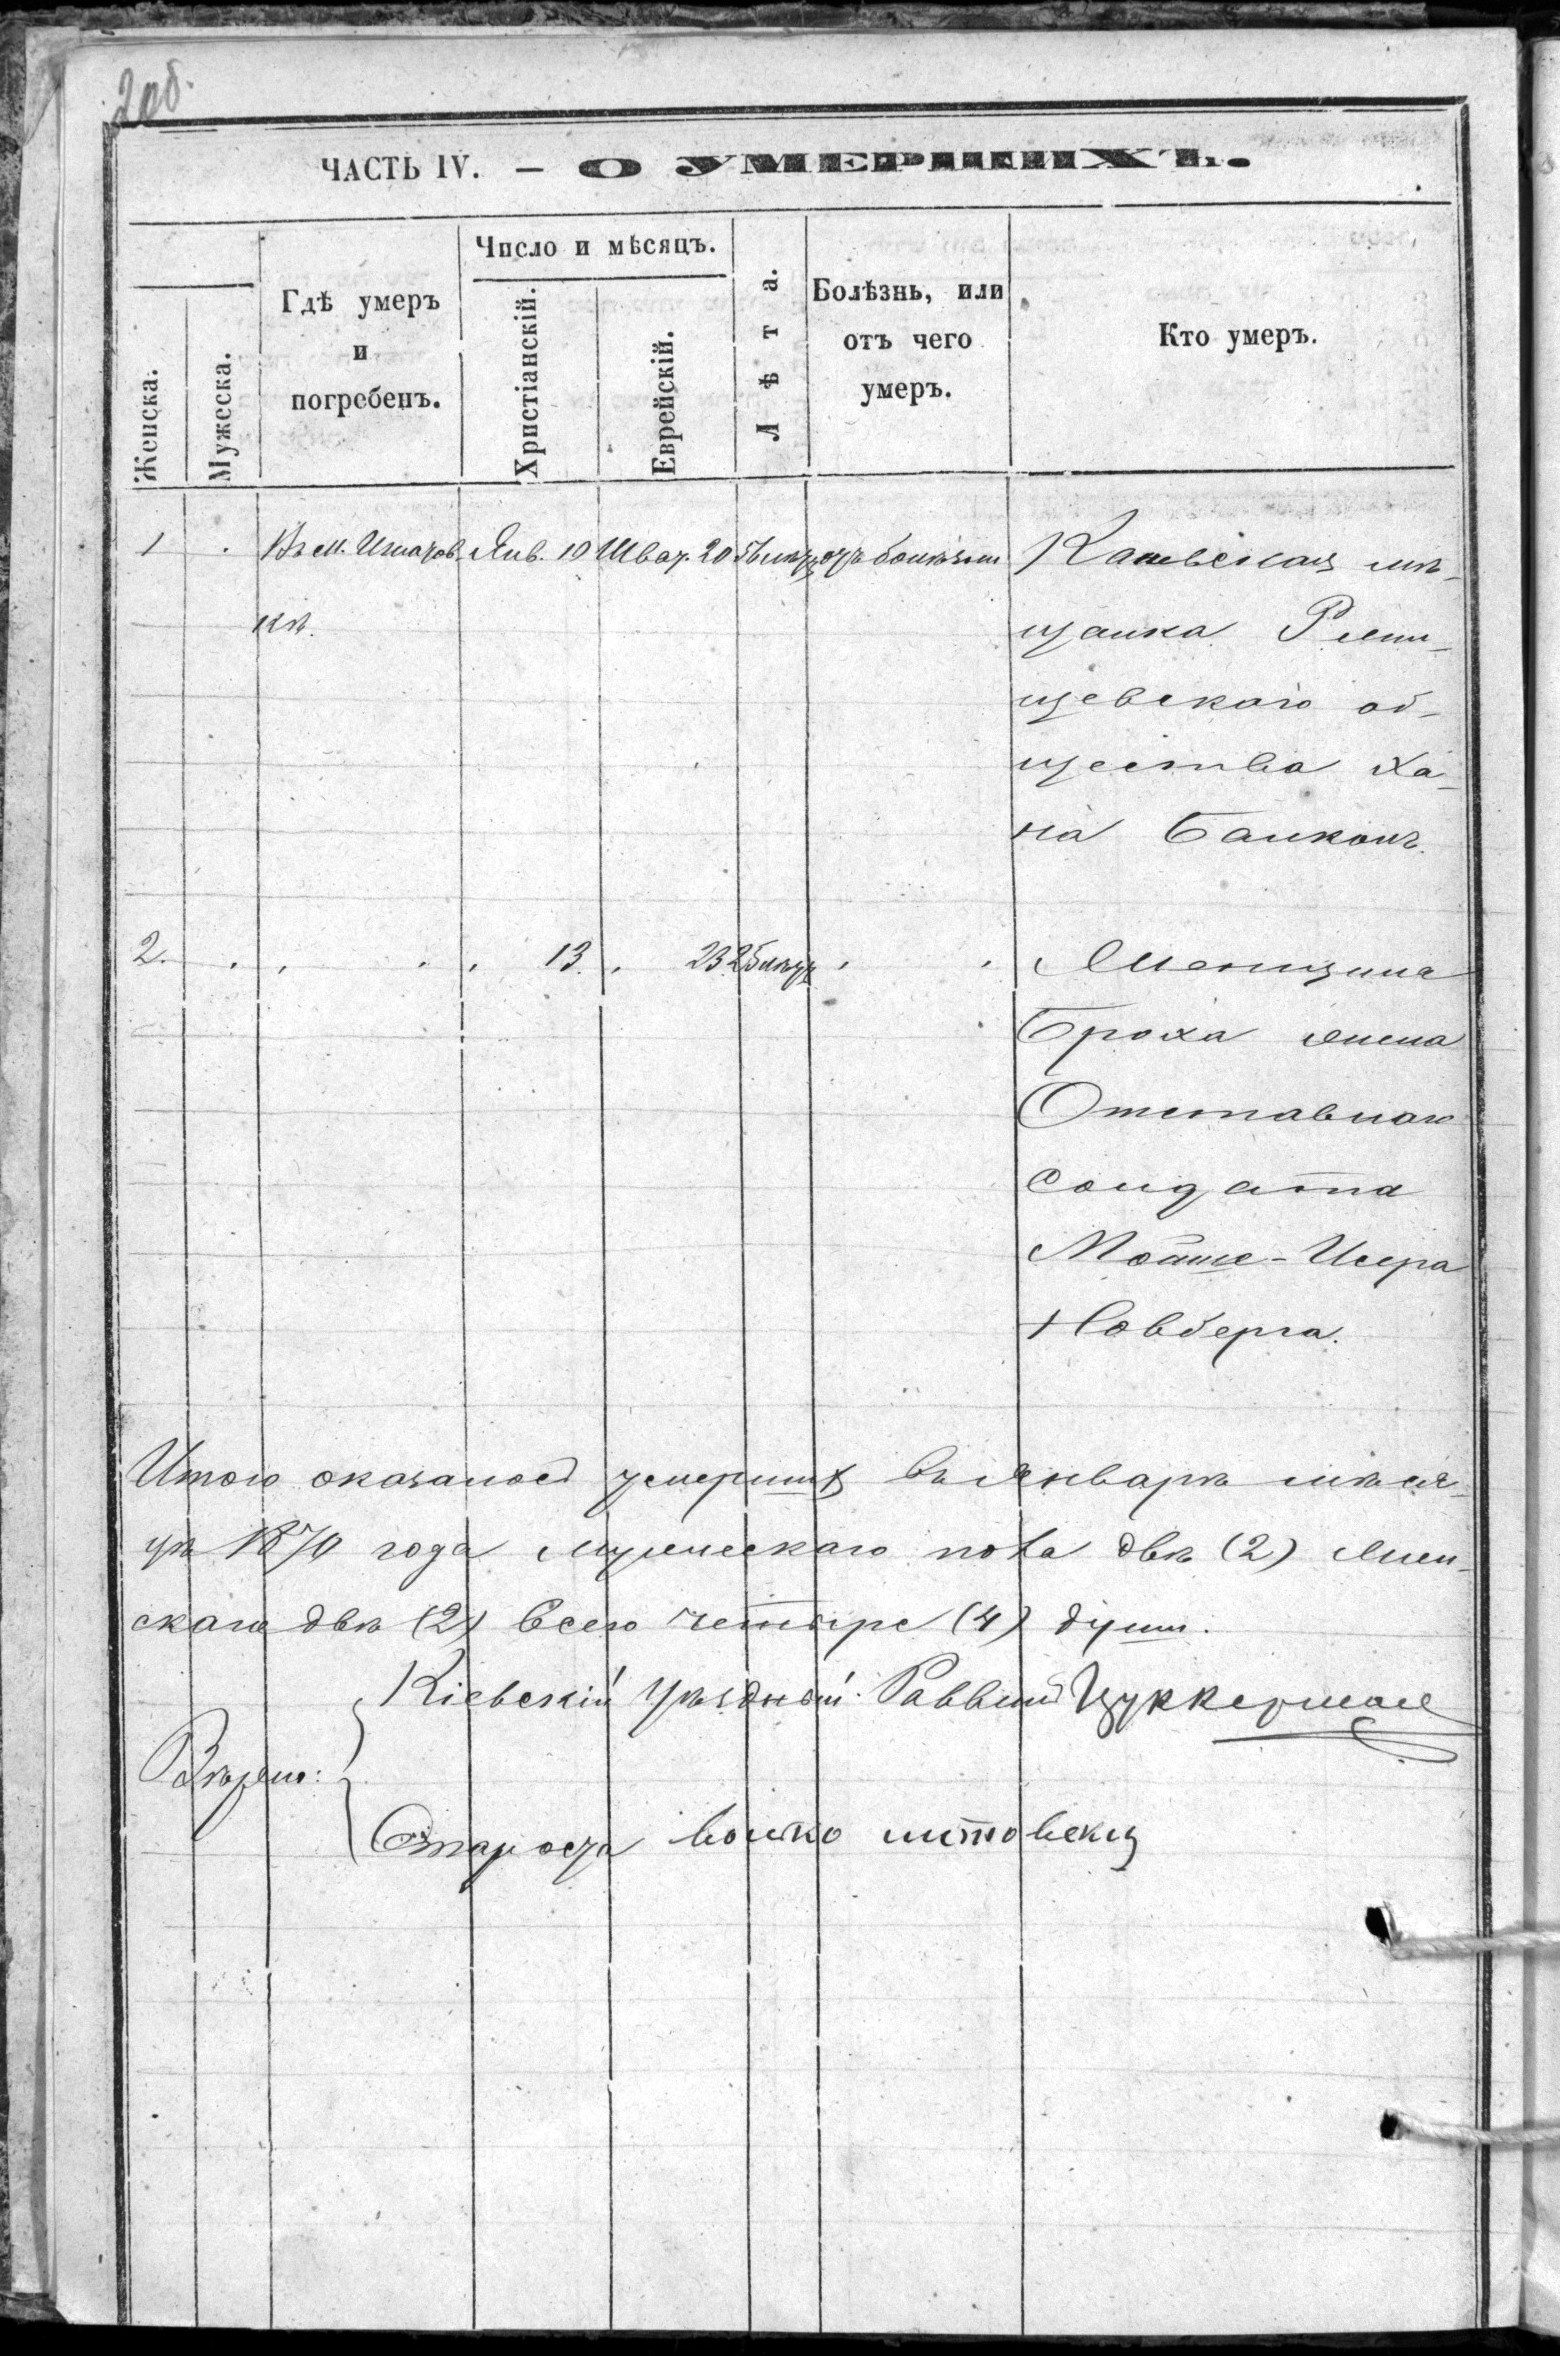 2об.
ЧАСТЬ IV. — О УМЕРШИХЪ.
Женска.
Мужеска.
Гдѣ умеръ
и
погребенъ.
Число и мѣсяцъ.
Христіанскій.
Еврейскій.
Лѣта.
Болѣзнь, или
отъ чего
умеръ.
Кто умеръ.
1 Въ м. Игнатов- Янв. 10 Шват. 20 лѣтъ отъ
кѣ.
Каневская мѣ-
щанка Ржи-
щевскаго об-
щества Ха-
на
2. 13. 23 25 лѣтъ
Женщина
Броха жена
Отставнаго
Солдата
Мойше-Исера
Новберга.
Итого оказалось умерших въ Январѣ мѣся-
цѣ 1870 года мужескаго пола двѣ (2) жен-
скаго двѣ (2) всего четыре (4) душ.
Кіевскій уѣздный Раввинъ Цуккерман
Вѣрно:
Староста Волько литовскій